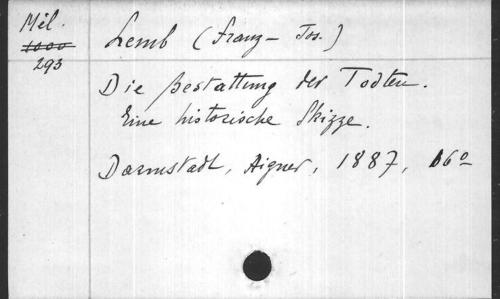 Mél.
1000
293
Lemb (Franz-Jos.)
Die Bestattung der Todten.
Eine historische Skizze.
Darmstadt, Aigner, 1887, 16°